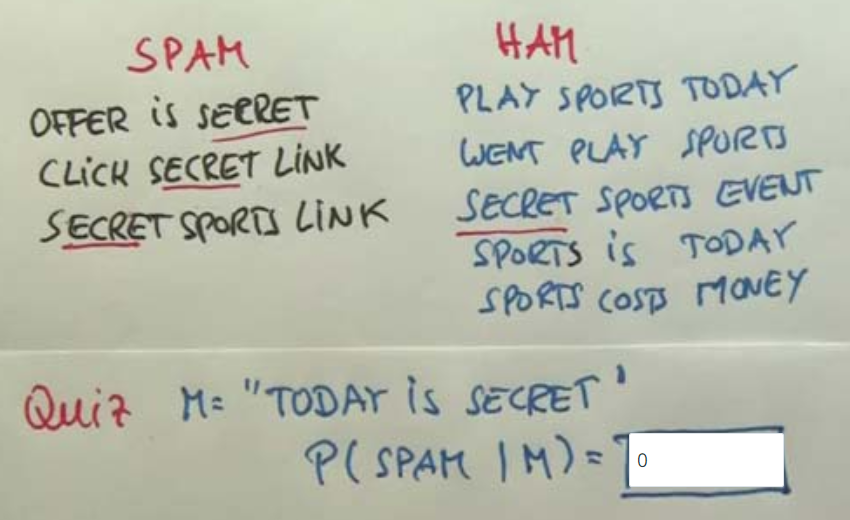 SPAM
OFFER is SECRET
CLICK SECRET LINK
SECRET SPORTS LINK
HAM
PLAY SPORTS TODAY
WENT PLAY SPORTS
SECRET SPORTS EVENT
SPORTS is TODAY
SPORTS COSTS MONEY
Quiz M= "TODAY is SECRET'
P(SPAM | M) = 0